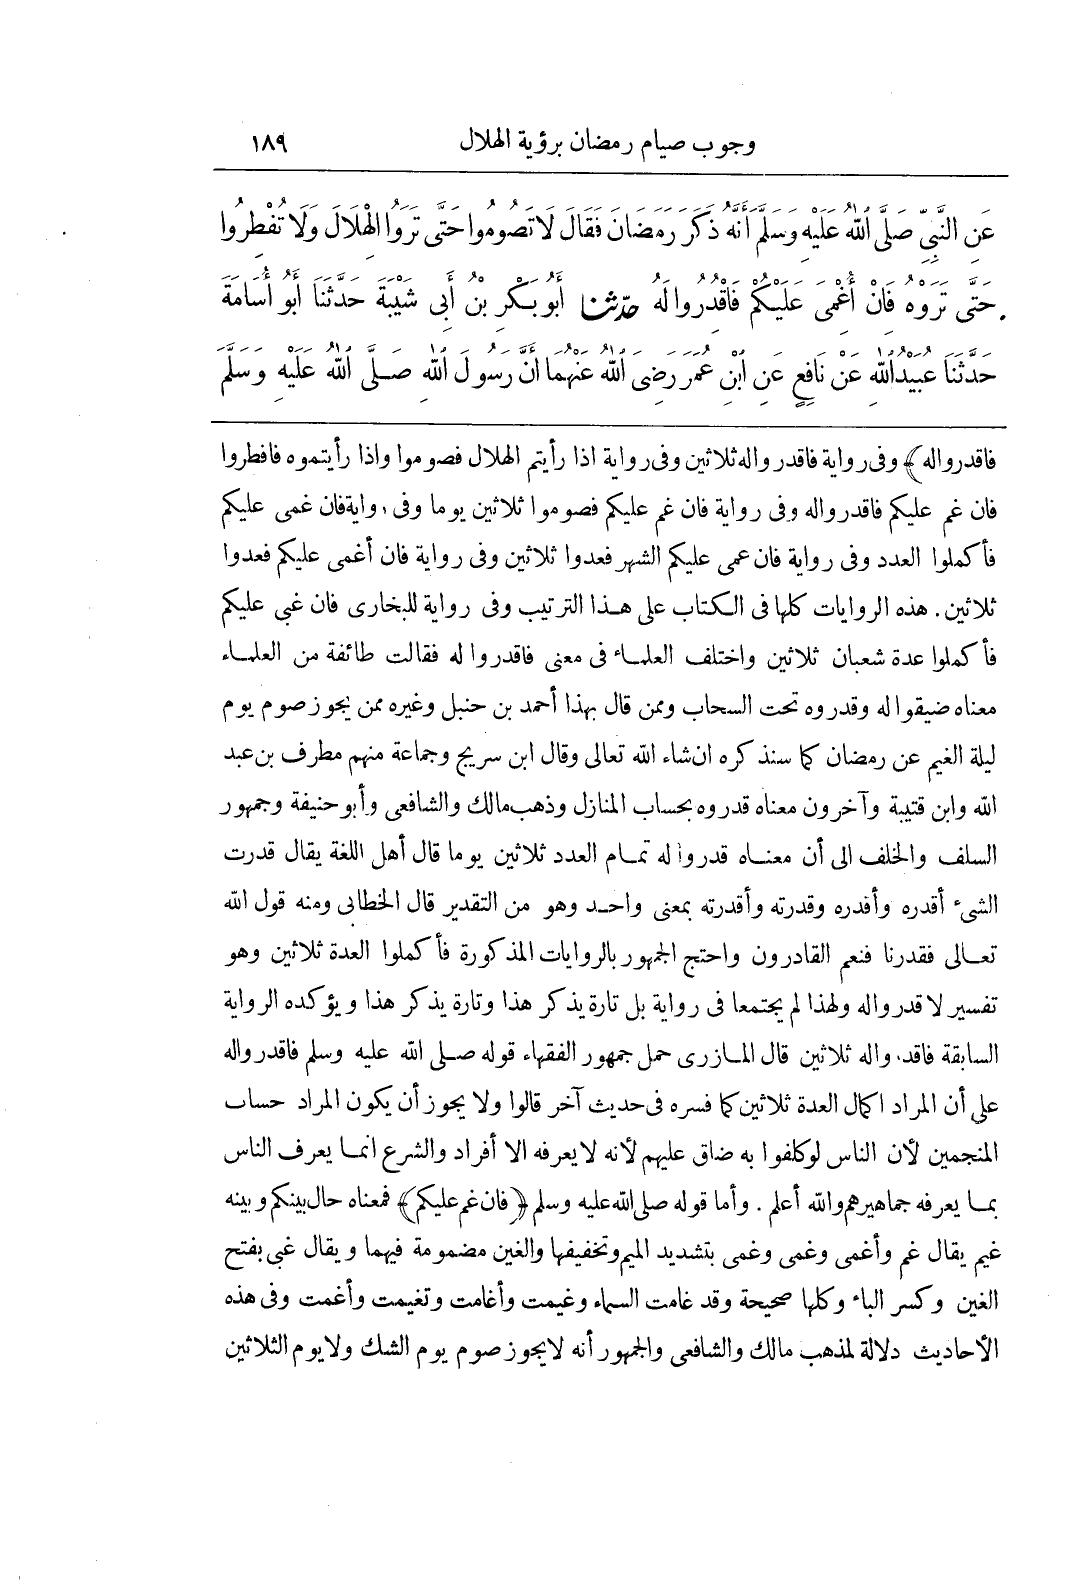 وجوب صيام رمضان برؤية الهلال ١٨٩
عَنِ النَّبِيِّ صَلَّى اللهُ عَلَيْهِ وَسَلَّمَ أَنَّهُ ذَكَرَ رَمَضَانَ فَقَالَ لَا تَصُومُوا حَتَّى تَرَوُا الْهِلَالَ وَلَا تُفْطِرُوا
حَتَّى تَرَوْهُ فَانْ أُغْمِىَ عَلَيْكُمْ فَاقْدُرُوا لَهُ حدّثنا أَبُو بَكْرِ بْنُ أَبِى شَيْبَةَ حَدَّثَنَا أَبُو أُسَامَةَ
حَدَّثَنَا عُبَيْدُ اللهِ عَنْ نَافِعٍ عَنِ ابْنِ عُمَرَ رَضِىَ اللهُ عَنْهُمَا أَنَّ رَسُولَ اللهِ صَلَّى اللهُ عَلَيْهِ وَسَلَّمَ
فاقدروا له﴾ وفى رواية فاقدروا له ثلاثين وفى رواية اذا رأيتم الهلال فصوموا واذا رأيتموه فافطروا
فان غم عليكم فاقدروا له وفى رواية فان غم عليكم فصوموا ثلاثين يوما وفى رواية فان غمى عليكم
فأكملوا العدد وفى رواية فان عمى عليكم الشهر فعدوا ثلاثين وفى رواية فان أغمى عليكم فعدوا
ثلاثين . هذه الروايات كلها فى الكتاب على هذا الترتيب وفى رواية للبخارى فان غبى عليكم
فأكملوا عدة شعبان ثلاثين واختلف العلماء فى معنى فاقدروا له فقالت طائفة من العلماء
معناه ضيقوا له وقدروه تحت السحاب وممن قال بهذا أحمد بن حنبل وغيره ممن يجوز صوم يوم
ليلة الغيم عن رمضان كما سنذكره ان شاء الله تعالى وقال ابن سريج وجماعة منهم مطرف بن عبد
الله وابن قتيبة وآخرون معناه قدروه بحساب المنازل وذهب مالك والشافعى وأبو حنيفة وجمهور
السلف والخلف الى أن معناه قدروا له تمام العدد ثلاثين يوما قال أهل اللغة يقال قدرت
الشىء أقدره وأقدره وقدرته وأقدرته بمعنى واحد وهو من التقدير قال الخطابى ومنه قول الله
تعالى فقدرنا فنعم القادرون واحتج الجمهور بالروايات المذكورة فأكملوا العدة ثلاثين وهو
تفسير لاقدروا له ولهذا لم يجتمعا فى رواية بل تارة يذكر هذا وتارة يذكر هذا ويؤكده الرواية
السابقة فاقدروا له ثلاثين قال المازرى حمل جمهور الفقهاء قوله صلى الله عليه وسلم فاقدروا له
على أن المراد اكمال العدة ثلاثين كما فسره فى حديث آخر قالوا ولا يجوز أن يكون المراد حساب
المنجمين لأن الناس لو كلفوا به ضاق عليهم لأنه لا يعرفه الا أفراد والشرع انما يعرف الناس
بما يعرفه جماهيرهم والله أعلم . وأما قوله صلى الله عليه وسلم ﴿فان غم عليكم﴾ فمعناه حال بينكم وبينه
غيم يقال غم وأغمى وغمى وغمى بتشديد الميم وتخفيفها والغين مضمومة فيهما ويقال غبى بفتح
الغين وكسر الباء وكلها صحيحة وقد غامت السماء وغيمت وأغامت وتغيمت وأغمت وفى هذه
الأحاديث دلالة لمذهب مالك والشافعى والجمهور أنه لا يجوز صوم يوم الشك ولا يوم الثلاثين